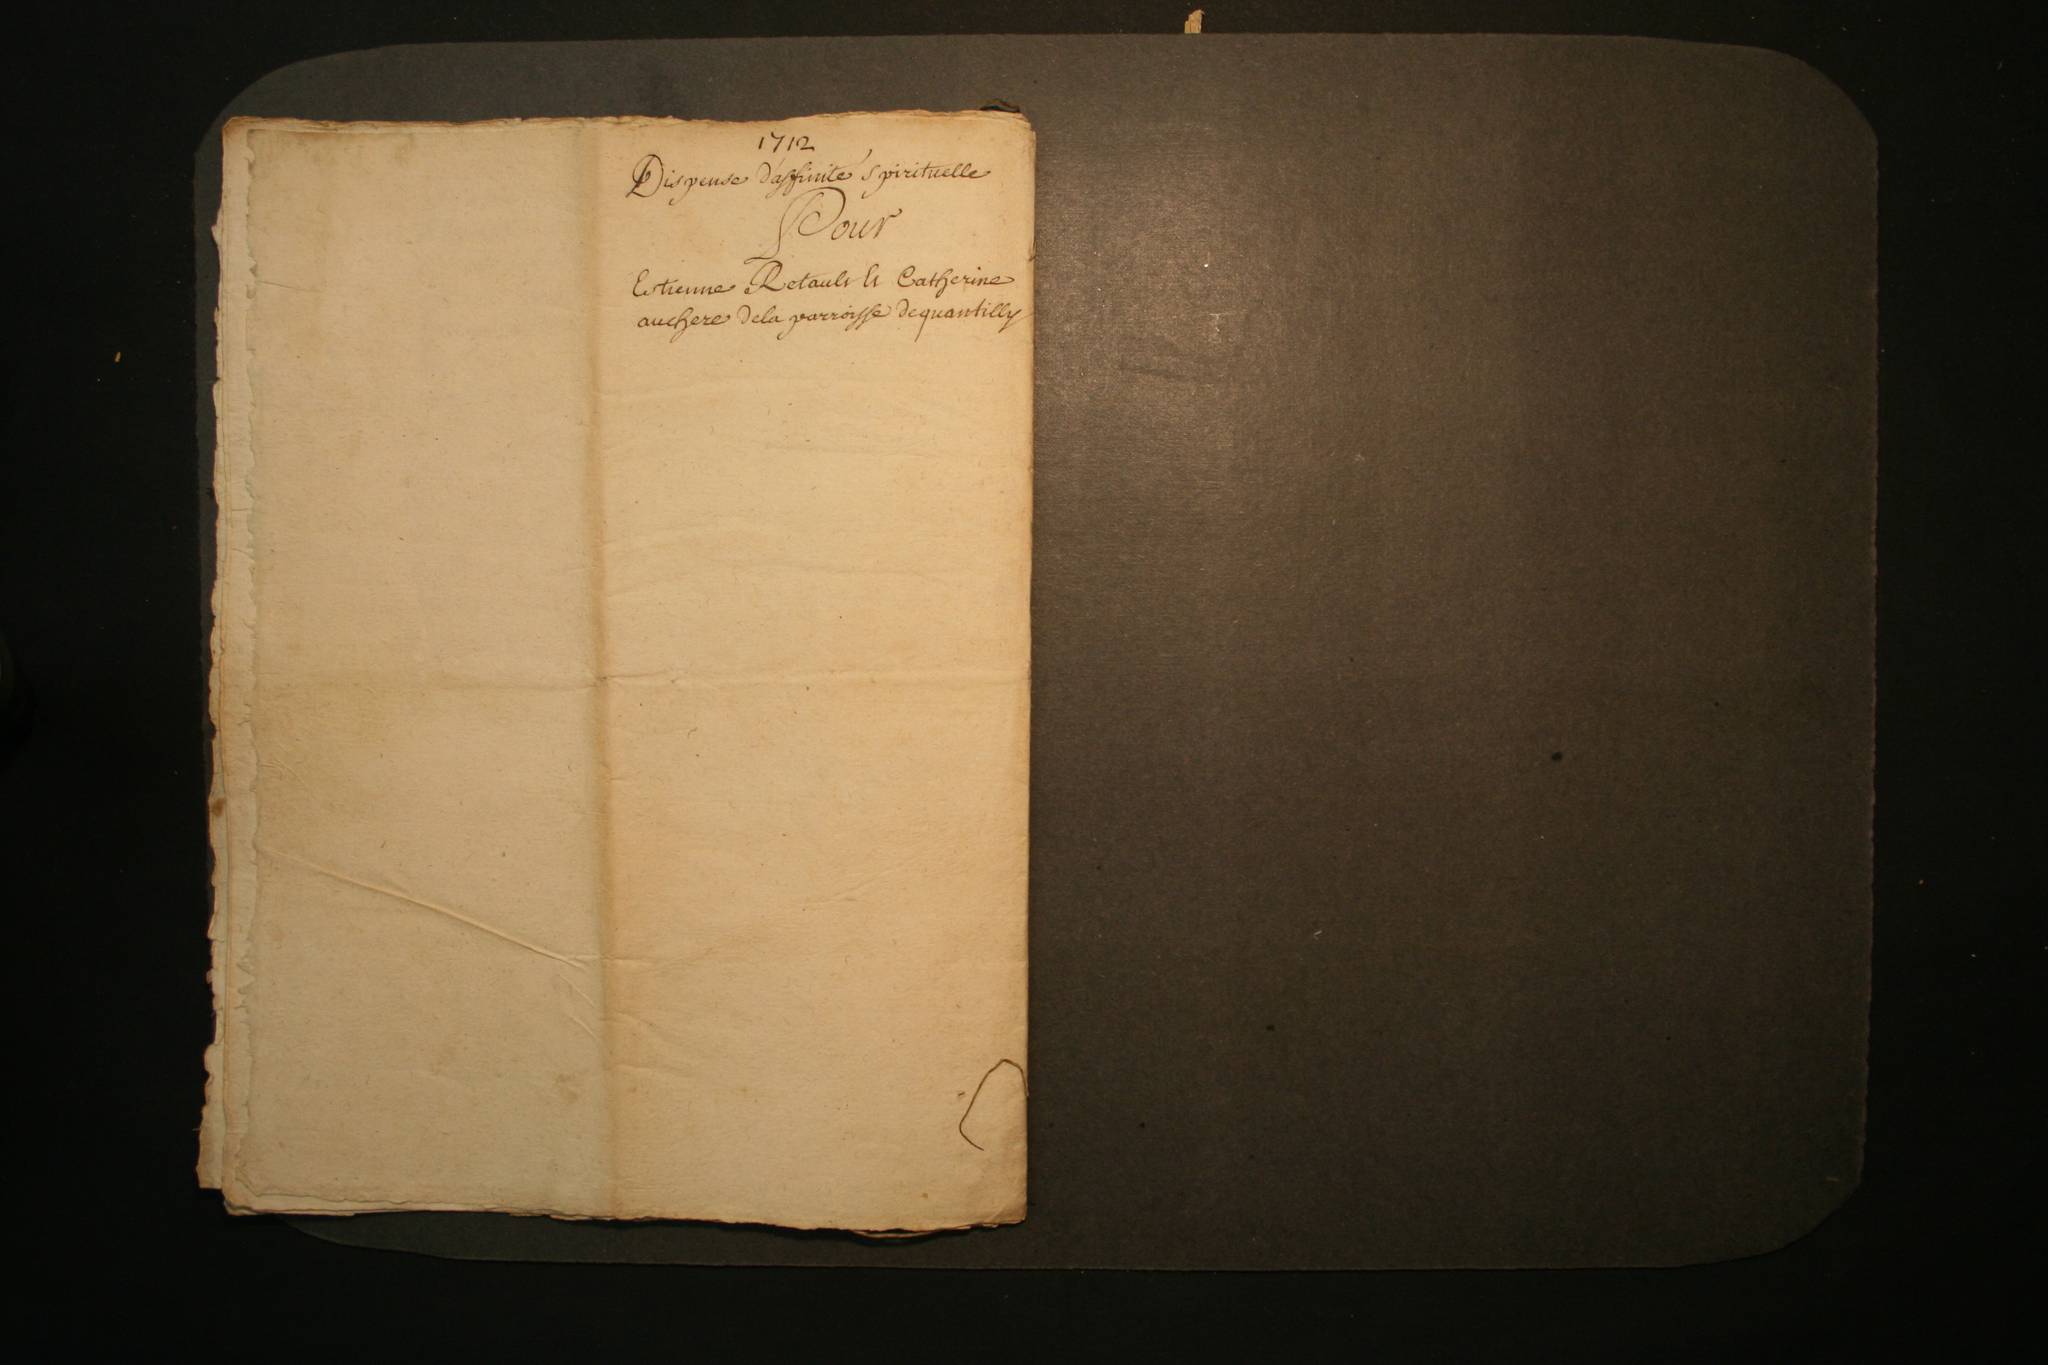 1712
Dispense d'affinité spirituelle
Pour
Estienne Retault Et Catherine
auchere dela parroisse dequantilly